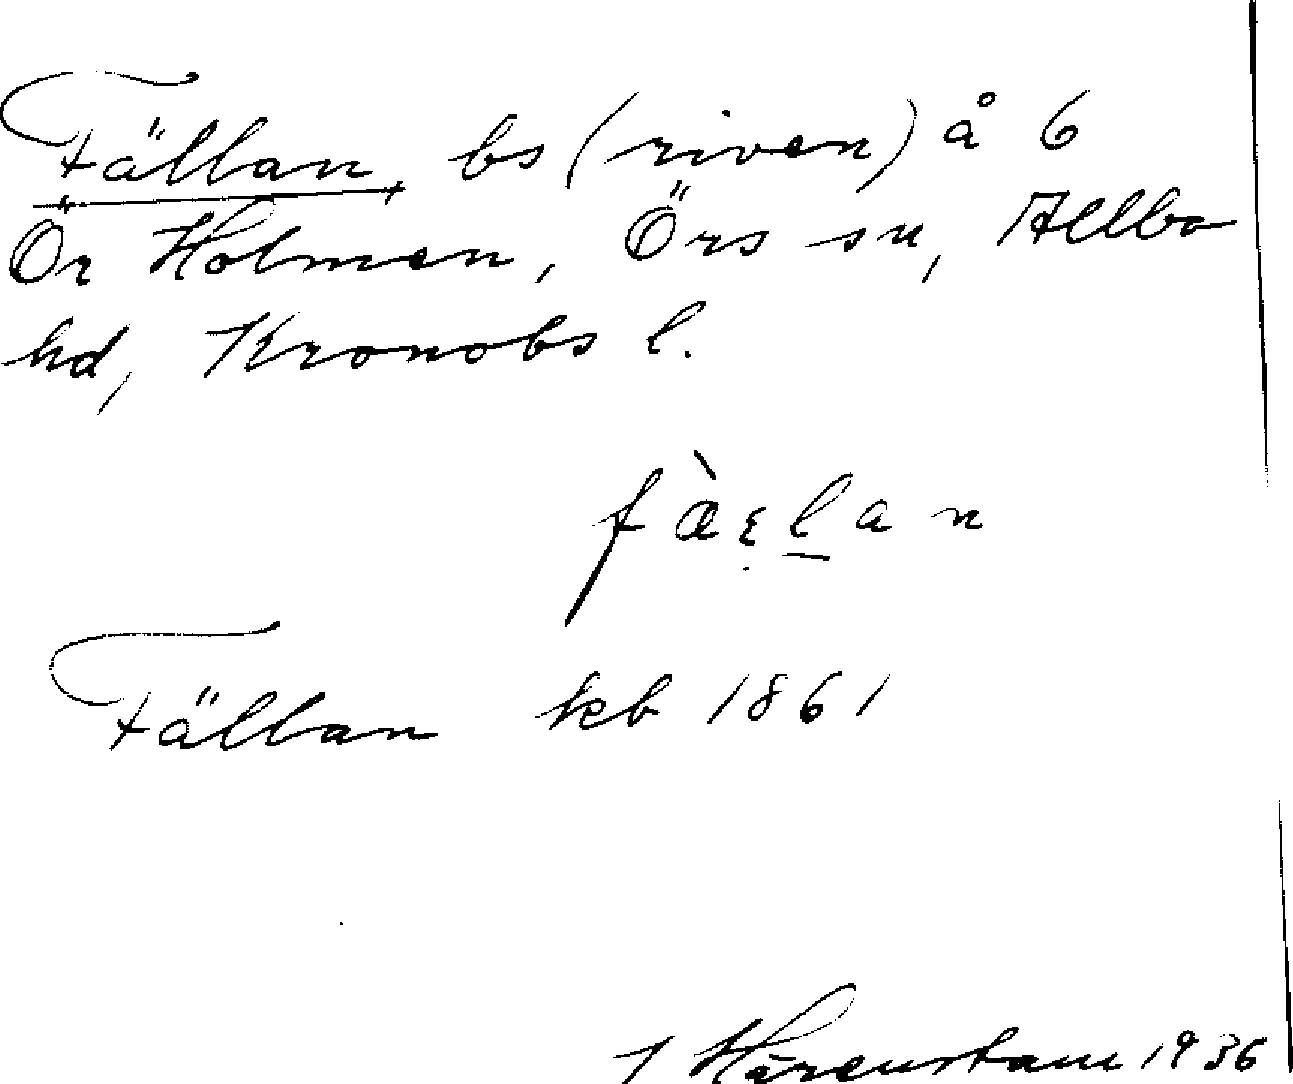 Fällan, bs (riven) å 6
Ör Holmen, Örs sn, Allbo
hd, Kronobs l.
fæ̀ɛl̲an
Fällan kb 1861
J Härenstam 1936